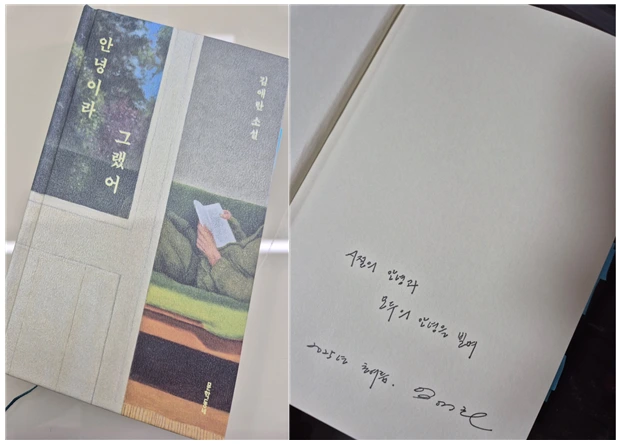 안녕이라
그랬어
김애란 소설
문학동네
시절의 안녕과
모두의 안녕을 빌며
2025년 초여름.